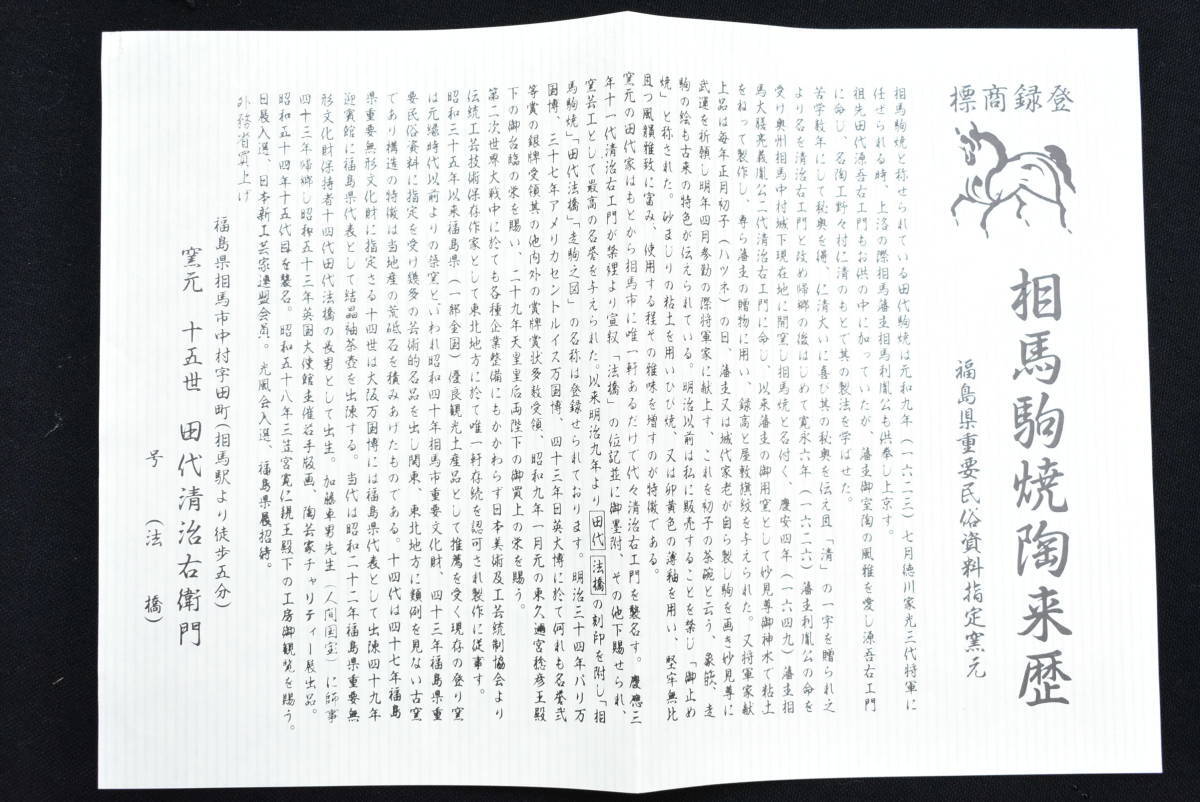 登録商標
相馬駒焼陶来歴
福島県重要民俗資料指定窯元
相馬駒焼と称せられている田代駒焼は元和九年（一六二三）七月徳川家光三代将軍に
任ぜられる時、上洛の際相馬藩主相馬利胤公も供奉し上京す。
祖先田代源吾右エ門もお供の中に加っていたが、藩主御室陶の風雅を愛し源吾右エ門
に命し、名陶工野々村に清のもとで其の製法を学ばせた。
苦学数年にして秘奥を得、仁清大いに喜び其の秘奥を伝え且「清」の一字を贈られ之
より名を清治右エ門と改め帰郷の後はじめて寛永六年（一六二六）藩主利胤公の命を
受け奥州相馬中村城下現在地に開窯し相馬焼と名付く、慶安四年（一六四九）藩主相
馬大膳亮義胤公二代清治右エ門に命し、以来藩主の御用窯として妙見尊御神水で粘土
をねって製作し、専ら藩主の贈物に用い、録高と屋敷旗紋を与えられた。又将軍家献
上品は毎年正月初子（ハツネ）の日、藩主又は城代家老が自ら製し駒を画き妙見尊に
武運を祈願し明年四月参勤の際将軍家に献上す、これを初子の茶碗と云う、象嵌、走
駒の絵も古来の特色が伝えられている。明治以前は私に販売することを禁し「御止め
焼」と称された。砂まじりの粘土を用いひび焼、又は卵黄色の薄釉を用い、堅牢無比
且つ風韻雅致に富み、使用する程その雅味を増すのが特徴である。
窯元の田代家はもとから相馬市に唯一軒あるだけで代々清治右エ門を襲名す。慶應三
年十一代清治右エ門が禁裡より宣叙「法橋」の位記並に御墨附、その他下賜せられ、
窯芸工として最高の名誉を与えられた。以来明治九年より田代法橋の刻印を附し「相
馬駒焼」「田代法橋」「走駒之図」の名称は登録せられております。明治三十四年パリ万
国博、三十七年アメリカセントルイス万国博、四十三年日英大博に於て何れも名誉弐
等賞の銀牌受領其の他内外の賞牌賞状多数受領、昭和九年一月元の東久邇宮稔彦王殿
下の御名臨の栄を賜い、二十九年天皇皇后両陛下の御買上の栄を賜う。
第二次世界大戦中に於ても各種企業整備にもかかわらず日本美術及工芸統制協会より
伝統工芸技術保存作家として東北地方に於て唯一軒存続を認可され製作に従事す。
昭和三十五年以来福島県（一部全国）優良観光土産品として推薦を受く現存の登り窯
は元禄時代以前よりの築窯といわれ昭和四十年相馬市重要文化財、四十三年福島県重
要民俗資料に指定を受け幾多の芸術的名品を出し関東、東北地方に類例を見ない古窯
であり構造の特徴は当地産の荒砥石を積みあげたものである。十四代は四十七年福島
県重要無形文化財に指定さる十四世は大阪万国博には福島県代表として出陳四十九年
迎賓館に福島県代表として結晶釉茶壺を出陳する。当代は昭和二十二年福島県重要無
形文化財保持者十四代田代法橋の長男として出生。加藤卓男先生（人間国宝）に師事
四十三年帰郷し昭和五十三年英国大使館主催名手版画、陶芸家チャリティー展出品。
昭和五十四年十五代目を襲名。昭和五十八年三笠宮寛仁親王殿下の工房御観覧を賜う。
日展入選、日本新工芸家連盟会員。光風会入選、福島県展招待。
外務省買上げ
福島県相馬市中村字田町（相馬駅より徒歩五分）
窯元 十五世 田代清治右衛門
号（法橋）